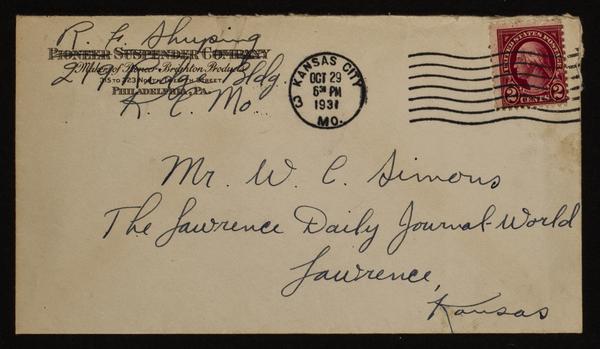 R. F. Shuping
PIONEER SUSPENDER COMPANY
Makers of Pioneer-Brighton Products
315 TO 323 NORTH TWELFTH STREET
Bldg.
PHILADELPHIA, PA.
K. C. Mo.
KANSAS CITY
OCT 29
6 30 PM
1931
MO.
3
UNITED STATES POSTAGE
2 CENTS 2
Mr. W. C. Simons
The Lawrence Daily Journal-World
Lawrence,
Kansas